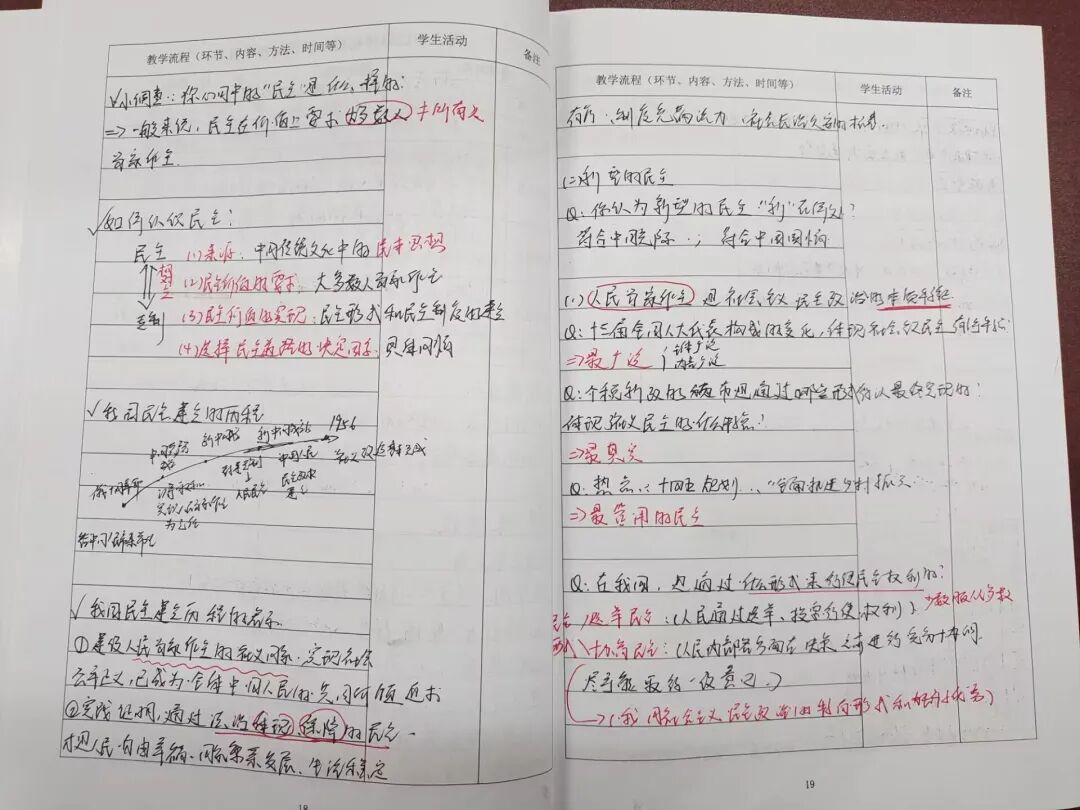 教学流程（环节、内容、方法、时间等）
学生活动
备注
√小调查：你心目中的“民主”是什么样的？
⇒一般来说，民主在价值上要求大多数人当家作主
非所有人
√如何认识民主？
民主 (1)来源：中国传统文化中的民本思想
(2)民主价值的要求：大多数人当家作主
专制 (3)民主价值的实现：民主形式和民主制度的建立
(4)选择民主道路的决定因素：具体国情
√我国民主建立的历程
1956
√我国民主建立历程的启示
①建设人民当家作主的社会主义国家，实现社会
公平正义，已成为全体中国人民的共同价值追求
②实践证明，通过法治体现、保障的民主
才是人民自由幸福、国家繁荣发展、生活稳定
18
教学流程（环节、内容、方法、时间等）
学生活动
备注
有序、制度充满活力、社会长治久安的
(二)新型的民主
Q：你认为新型的民主“新”在何处？
符合中国实际；符合中国国情
(1)人民当家作主是社会主义民主政治的本质特征
Q：十三届全国人大代表构成的变化，体现社会主义民主有何特点？
⇒最广泛
Q：个税新政的颁布是通过哪些形式得以最终实现的？
体现社会主义民主的什么特点？
⇒最真实
⇒最管用的民主
Q：在我国，是通过什么形式来行使民主权利的？
选举民主：(人民通过选举、投票行使权利)
少数服从多数
协商民主：(人民内部各方面在决策之前进行充分协商，
尽可能取得一致意见。)
(我国社会主义民主政治的特有形式和独特优势)
19